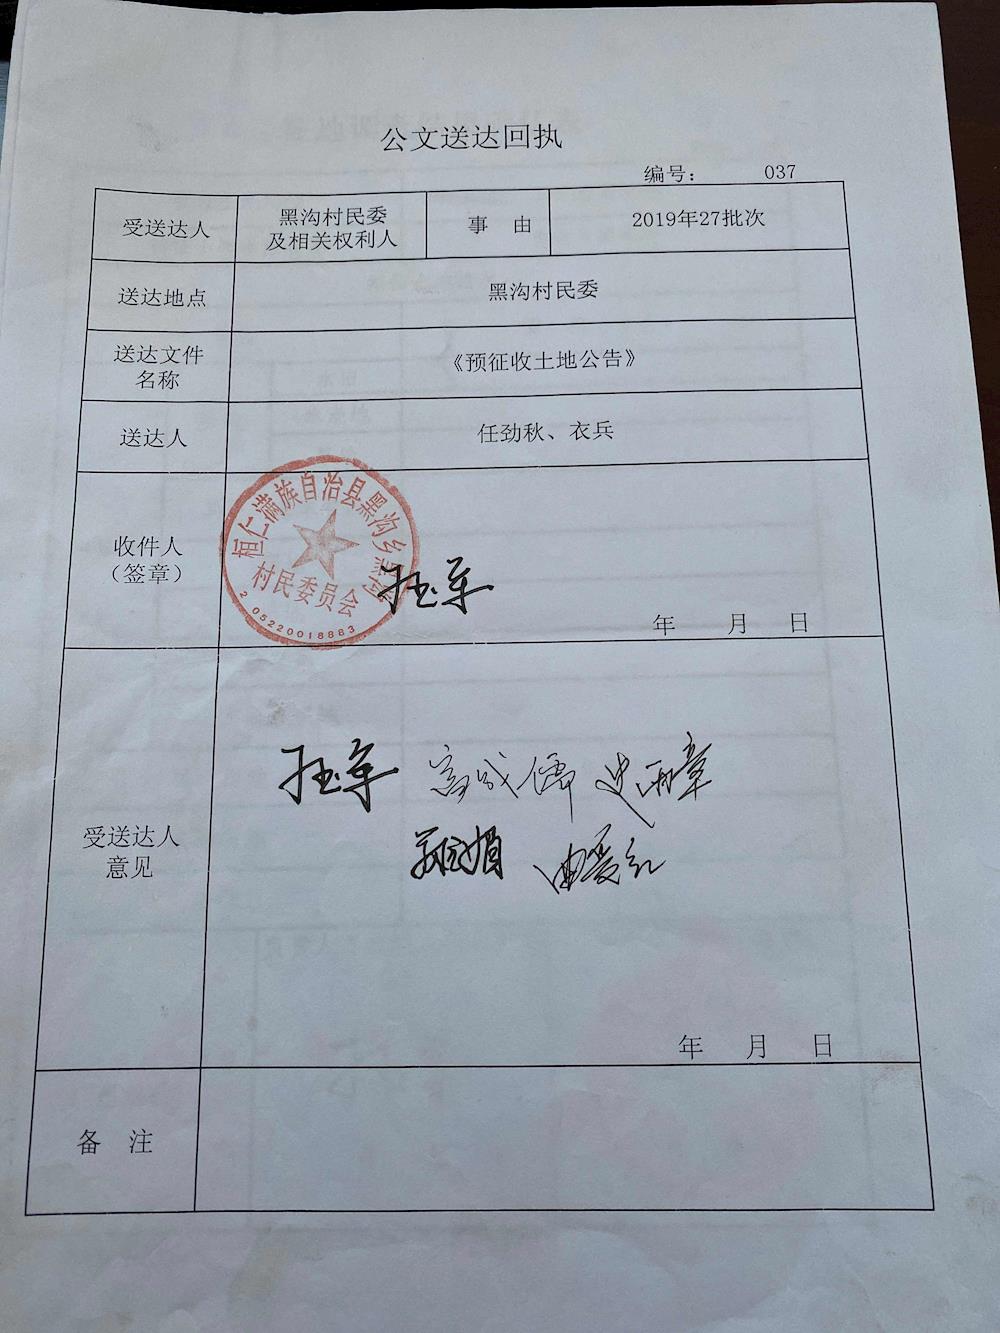 公文送达回执
编号： 037
受送达人 黑沟村民委 及相关权利人 事 由 2019年27批次
送达地点 黑沟村民委
送达文件名称 《预征收土地公告》
送达人 任劲秋、衣兵
收件人
（签章）
桓仁满族自治县黑沟乡黑沟
村民委员会
205220018883
年 月 日
受送达人
意见
年 月 日
备 注